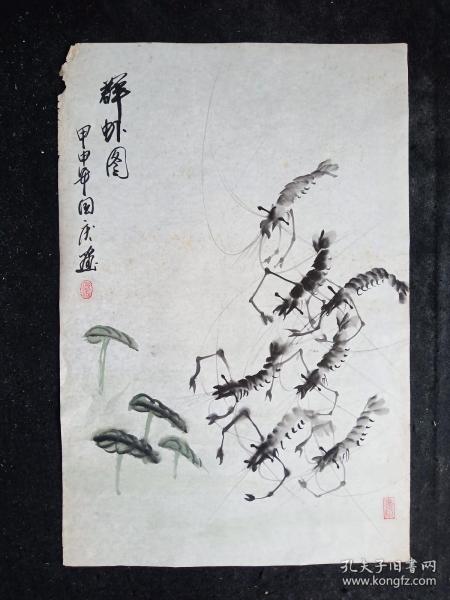 群虾图
甲申年国庆画
孔夫子旧书网
www.kongfz.com